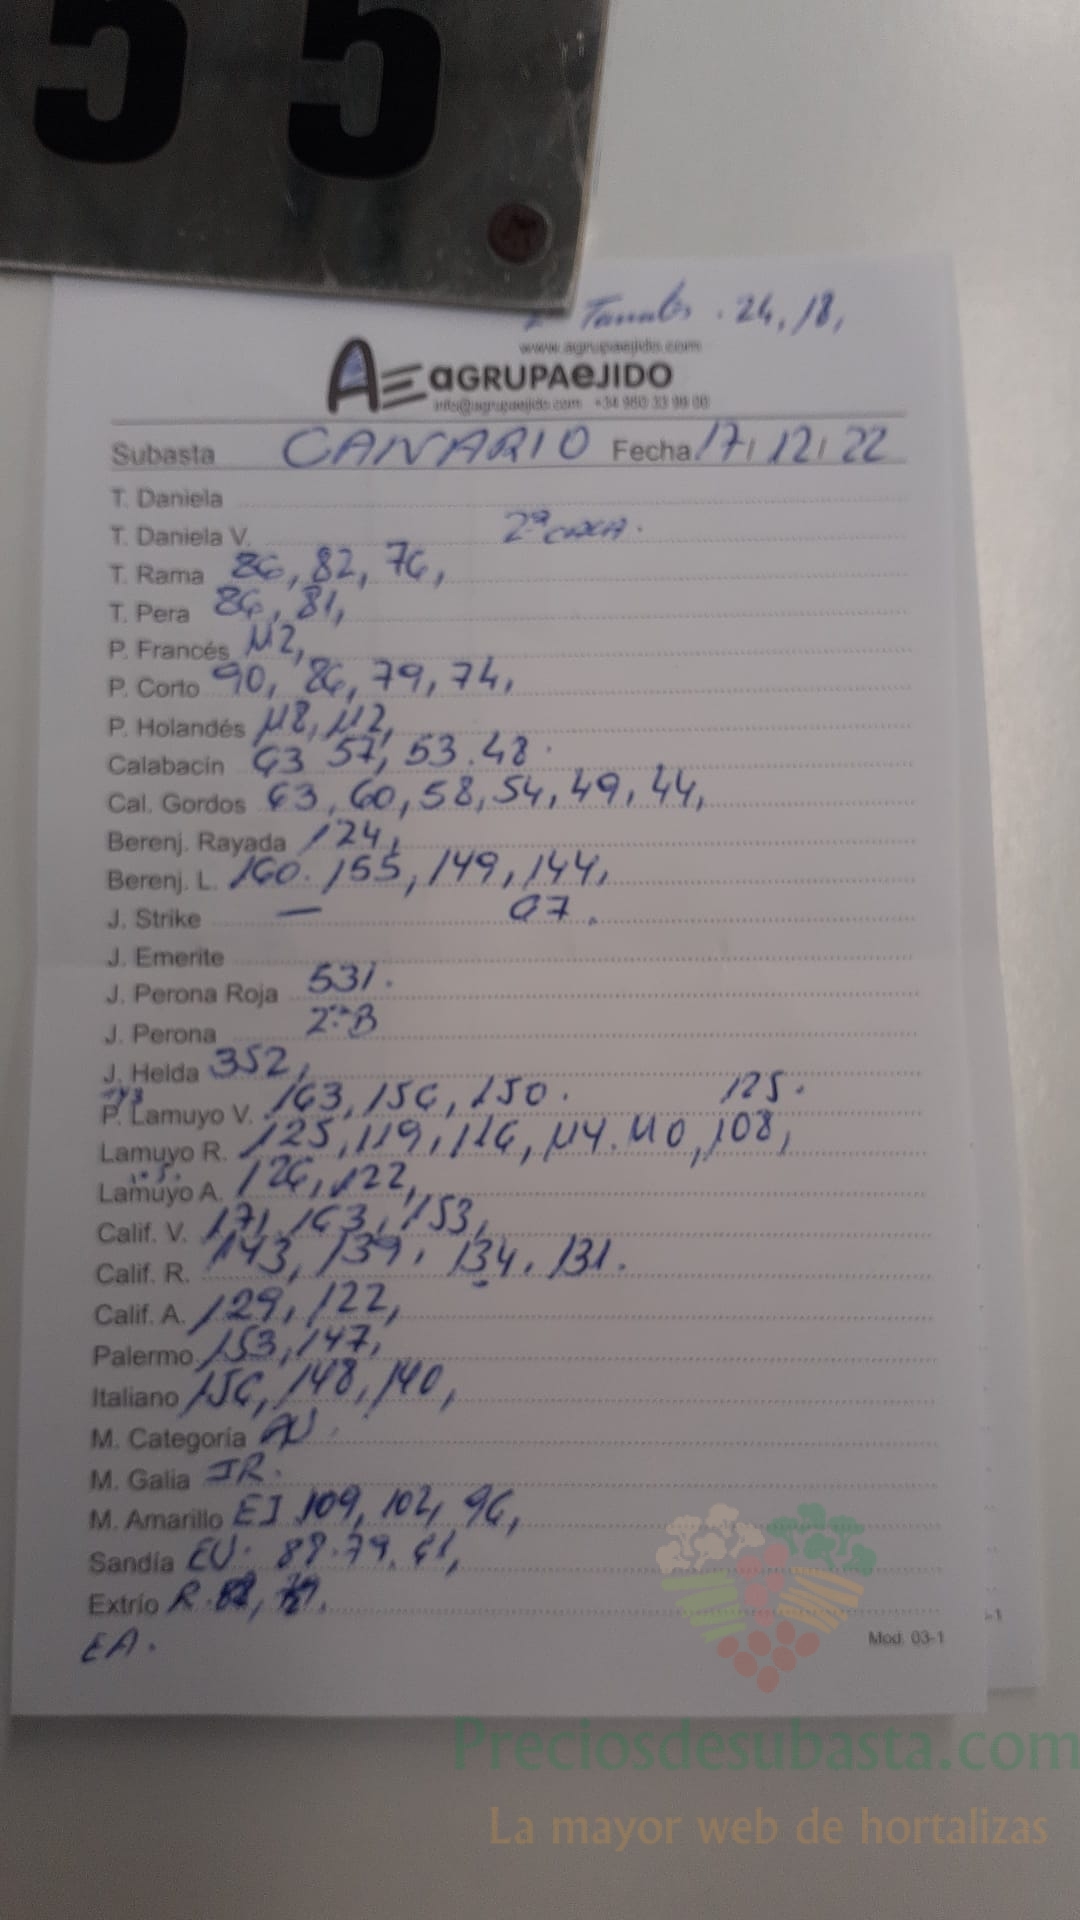 55
Tomates. 24, 18,
www.agrupaejido.com
AE aGRUPAeJIDO
info@agrupaejido.com +34 950 33 99 00
Subasta CANARIO Fecha 17/12/22
T. Daniela
T. Daniela V. 2ª CAÍA.
T. Rama 86, 82, 76,
T. Pera 86, 81,
P. Francés 112,
P. Corto 90, 86, 79, 74,
P. Holandés 118, 112,
Calabacín 63 57, 53. 48.
Cal. Gordos 63, 60, 58, 54, 49, 44,
Berenj. Rayada 124,
Berenj. L. 160. 155, 149, 144,
J. Strike — 97.
J. Emerite
J. Perona Roja 531.
J. Perona 2ª B
J. Helda 352,
P. Lamuyo V. 163, 156, 150. 125.
Lamuyo R. 125, 119, 116, 114. 110, 108,
Lamuyo A. 126, 122,
Calif. V. 171, 163, 153,
Calif. R. 143, 139, 134, 131.
Calif. A. 129, 122,
Palermo 153, 147,
Italiano 156, 148, 140,
M. Categoría AU.
M. Galia IR.
M. Amarillo EJ 109, 102, 96,
Sandía EU. 88. 79. 61,
Extrío R.
EA.
Mod. 03-1
-1
Preciosdesubasta.com
La mayor web de hortalizas